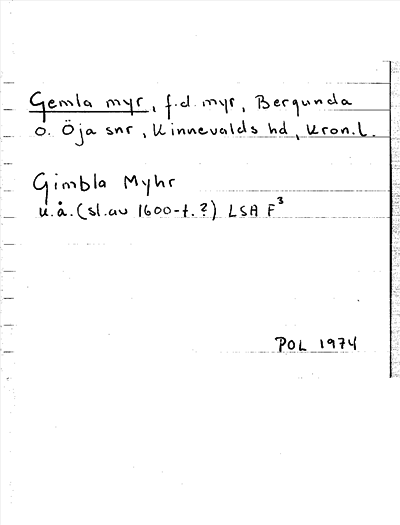 Gemla myr, f.d. myr, Bergunda
o. Öja snr, Kinnevalds hd, Kron.l.
Gimbla Myhr
u.å. (sl.av 1600-t.?) LSA F3
POL 1974